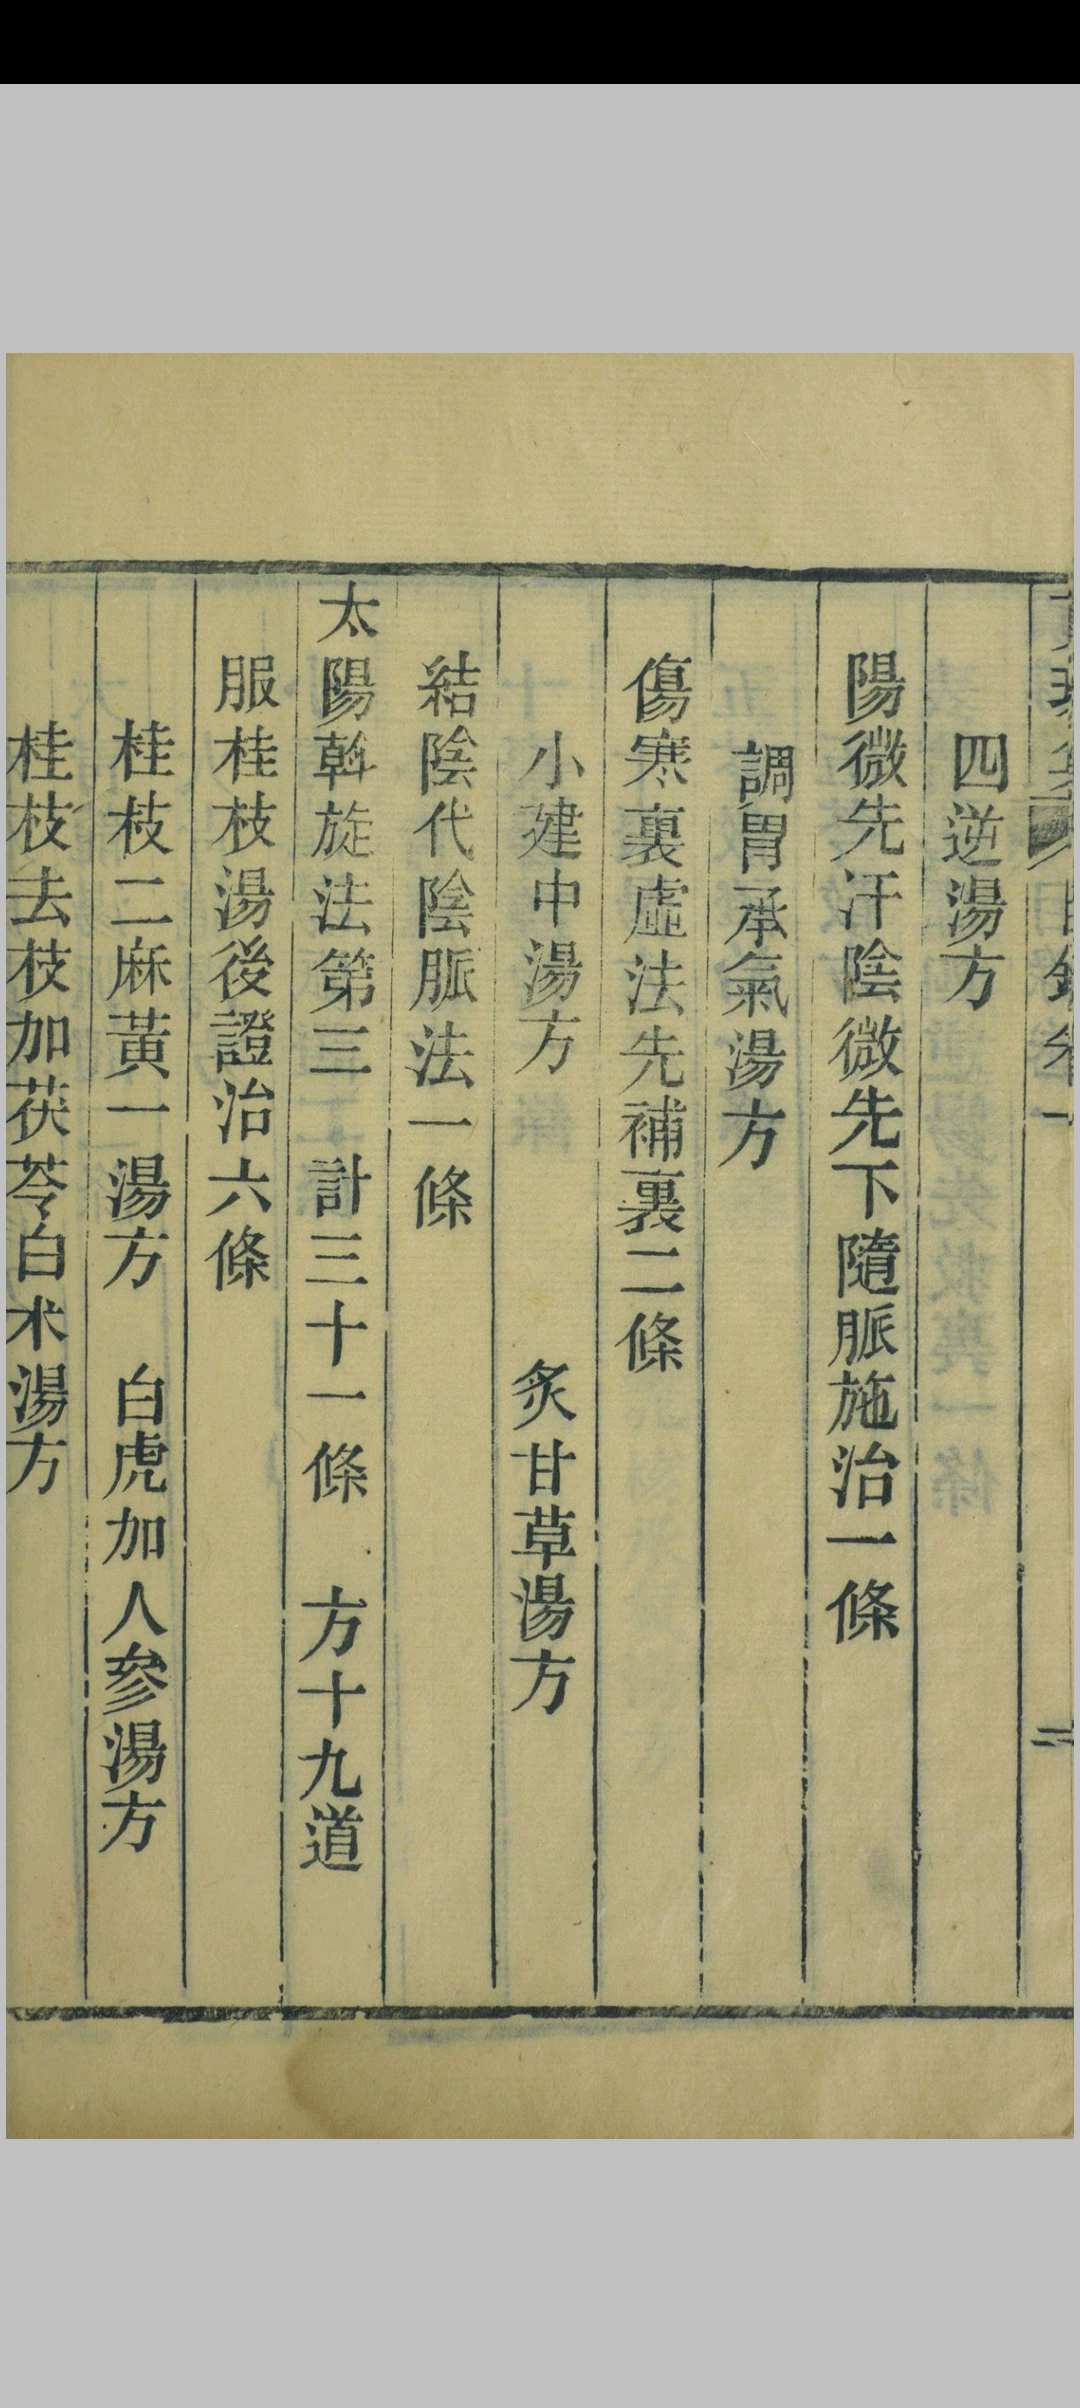 四逆湯方
陽微先汗陰微先下隨脈施治一條
調胃承氣湯方
傷寒裏虛法先補裏二條
小建中湯方 炙甘草湯方
結陰代陰脈法一條
太陽斡旋法第三 計三十一條 方十九道
服桂枝湯後證治六條
桂枝二麻黃一湯方 白虎加人參湯方
桂枝去枝加茯苓白术湯方